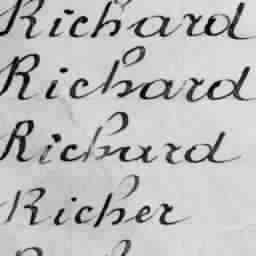 Richard
Richard
Richard
Richer